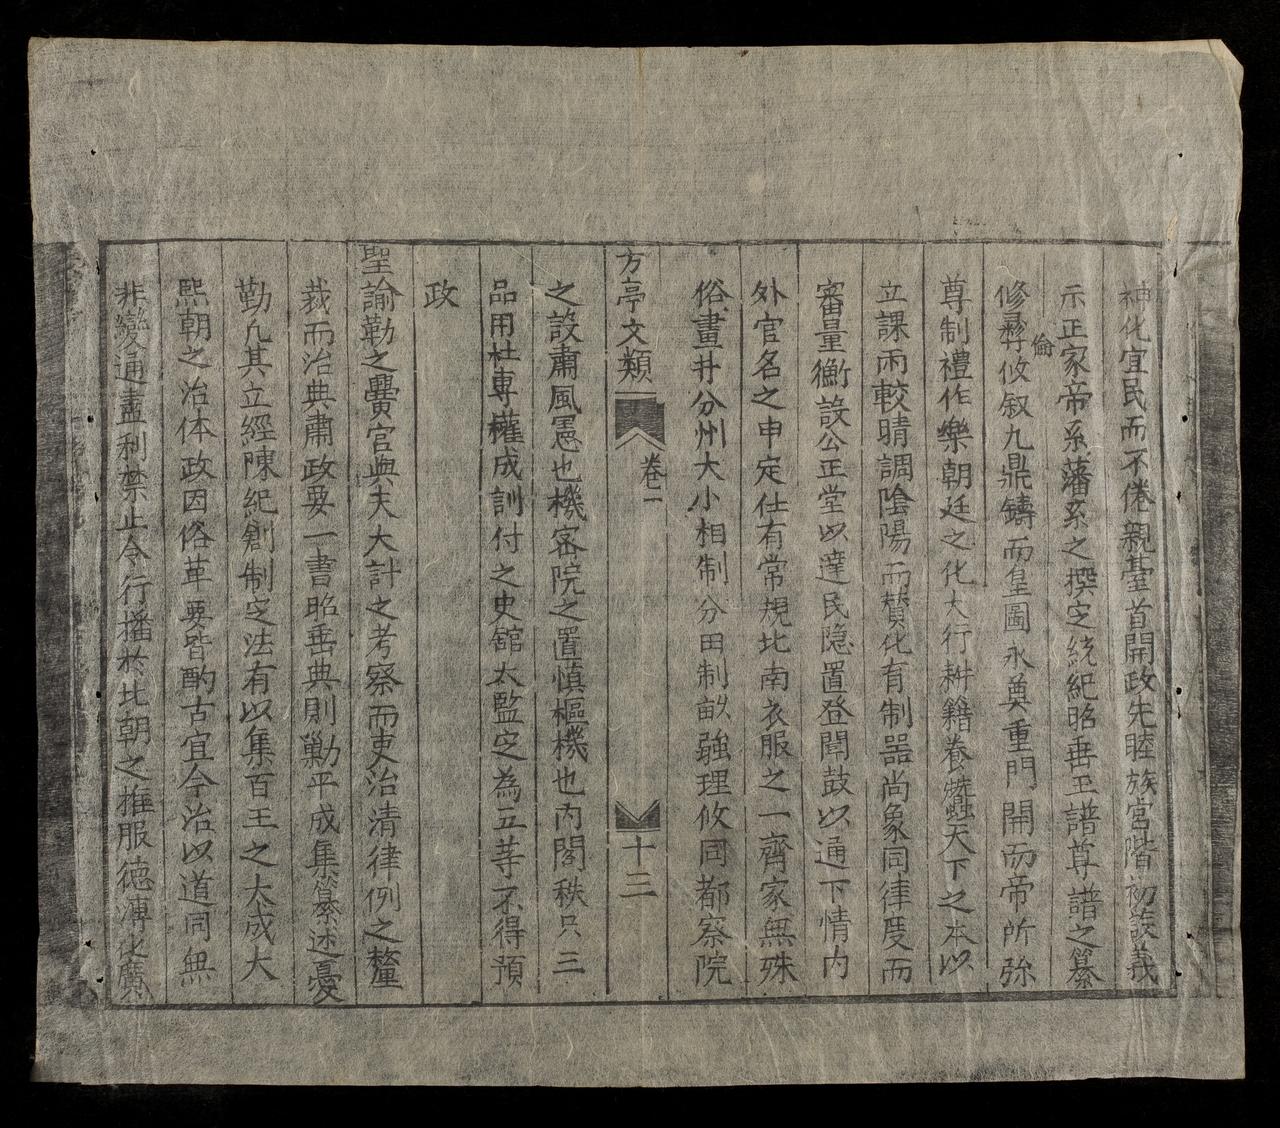 神化宜民而不倦親墓首開政先睦族宮階初設義
示正家帝系藩系之撰定統紀昭垂玉譜尊譜之纂
修彞倫攸叙九鼎鑄而皇圖永奠重門開而帝所弥
尊制禮作樂朝廷之化大行耕籍養蠶天下之本以
立課雨較晴調陰陽而賛化有制器尚象同律度而
審量衡設公正堂以達民隐置登聞鼓以通下情内
外官名之申定仕有常規北南衣服之一齊家無殊
俗畫井分州大小相制分田制畝強理攸同都察院
方亭文類 卷一 十三
之設肅風憲也機密院之置慎樞機也内閣秩只三
品用杜專權成訓付之史舘太監定為五等不得預
政
聖諭勤之黌官與夫大計之考察而吏治清律例之釐
裁而治典肅政要一書昭垂典則勦平成集纂述憂
勤凡其立經陳紀創制定法有以集百王之大成大
熙朝之治体政因俗革要皆酌古宜今治以道同無
非變通盡利禁止令行播於北朝之推服德溥化廣